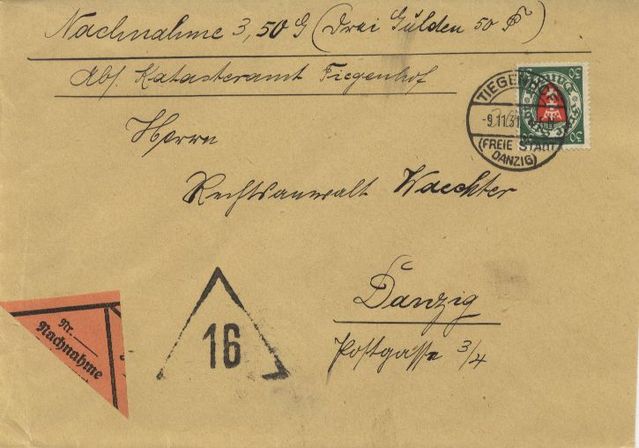 Nachnahme 3,50 G (Drei Gulden 50 P)
Abs. Katasteramt Tiegenhof
TIEGENHOF
-9.11.31
(FREIE STADT
DANZIG)
30
30
Herrn
Rechtsanwalt Waechter
Danzig
Postgasse 3/4
16
Nr.
Nachnahme